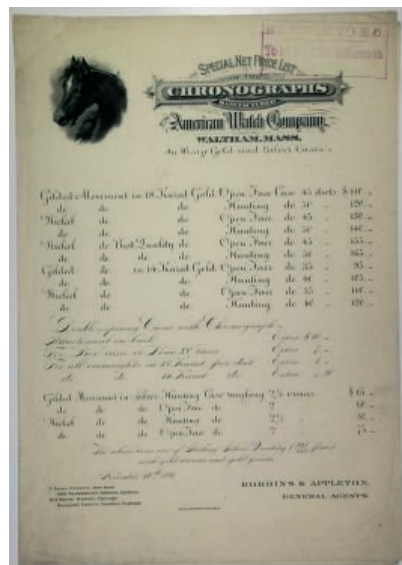 SPECIAL NET PRICE LIST
OF THE
CHRONOGRAPHS
MANUFACTURED
American Watch Company,
WALTHAM, MASS.
In Heavy Gold and Silver Cases
Gilded Movement in 18 Karat Gold Open Face Case 45 dwts $110
do do do Hunting do 50 " 120
Nickel do do Open Face do 45 " 130
do do do Hunting do 50 " 140
Nickel do Best Quality do Open Face do 45 " 155
do do do do Hunting do 50 " 165
Gilded do in 14 Karat Gold Open Face do 35 " 95
do do do Hunting do 40 " 105
Nickel do do Open Face do 35 " 110
do do do Hunting do 40 " 120
Double Spring Cases with Chronograph
Attachment on Lock Extra $10
For all overweights in 18 Karat per dwt Extra
do do 14 Karat do Extra
Gilded Movement in silver Hunting Case weighing 2½ ounces $65
do do do Open Face do 2 " 60
Nickel do do Hunting do 2½ " 80
do do do Open Face do 2 " 75
The above are of Sterling Silver Quality
with gold crowns and gold joints
ROBBINS & APPLETON,
GENERAL AGENTS.